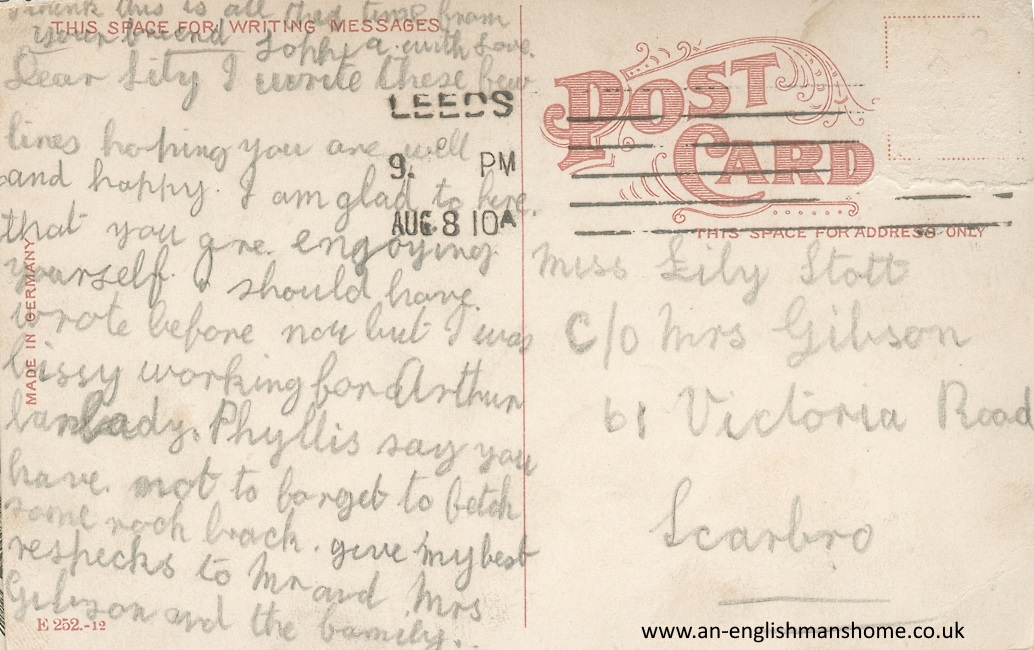 think this is all this time from
THIS SPACE FOR WRITING MESSAGES
your friend Sophya with Love.
Dear Lily I write these few
lines hoping you are well
and happy. I am glad to here.
that you are engoying
yourself. I should have.
wrote before now but I was
bissy working for Arthur
lanlady. Phyllis say you
have. not to forget to fetch
some rock back. give my best
respecks to Mr and Mrs
Gibson and the family.
MADE IN GERMANY
E 252.-12
LEEDS
9. PM
AUG 8 10A
POST
CARD
THIS SPACE FOR ADDRESS ONLY
Miss Lily Stott
C/o Mrs Gibson
61 Victoria Road
Scarbro
www.an-englishmanshome.co.uk